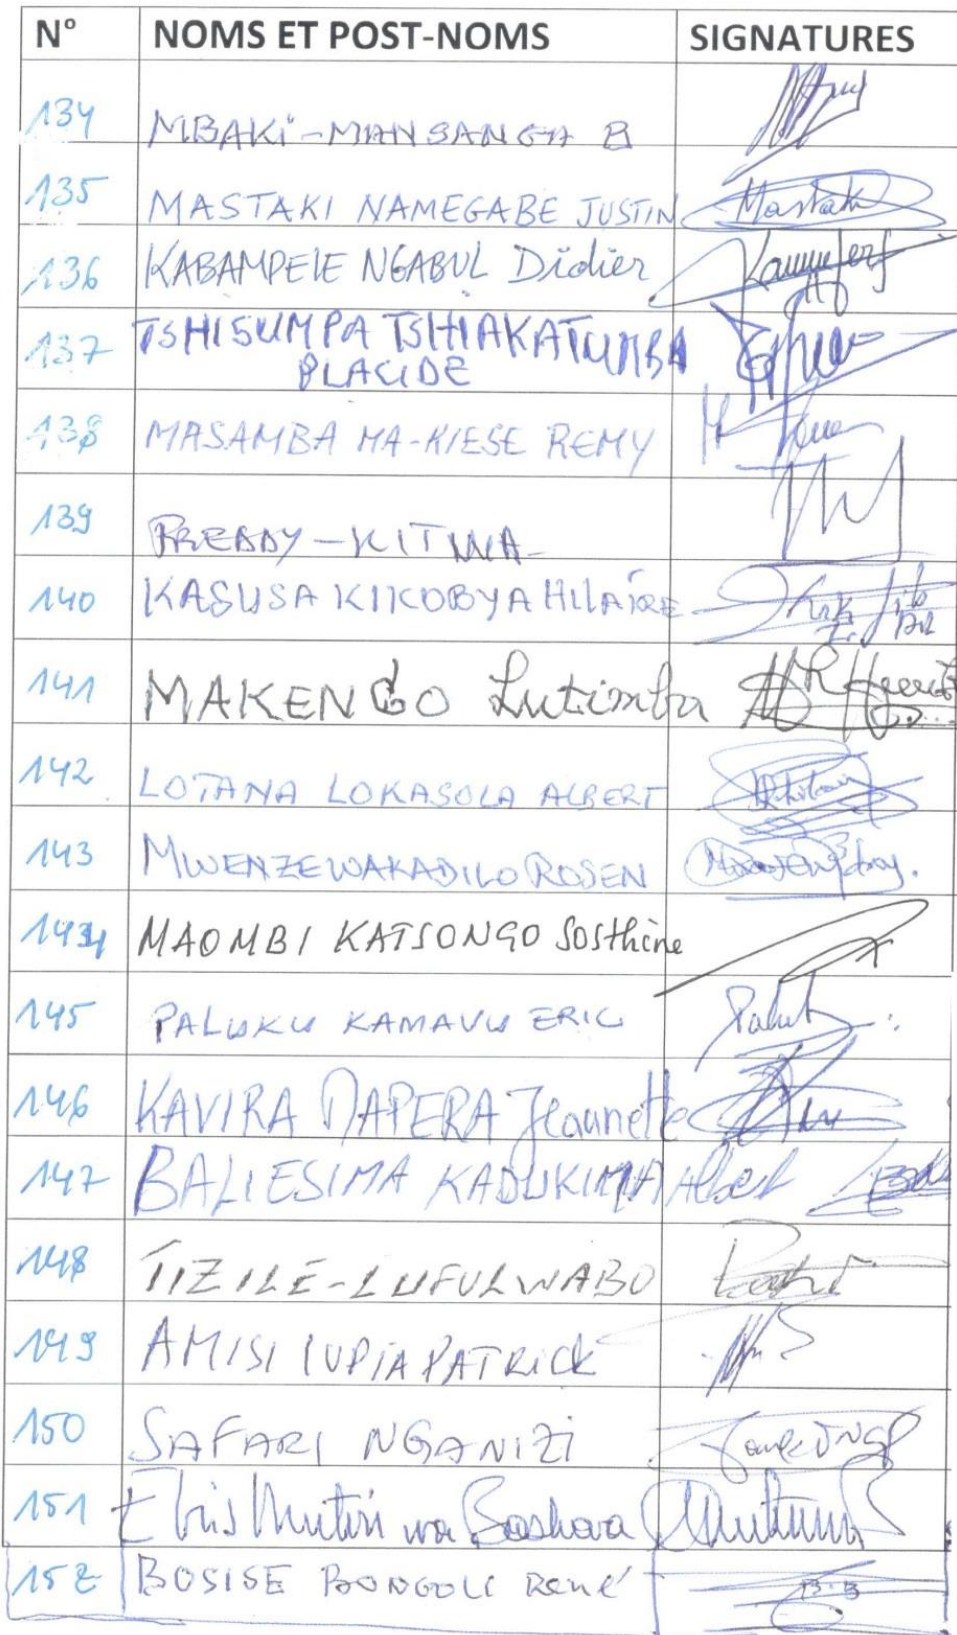 N° NOMS ET POST-NOMS SIGNATURES
134 MBAKI-MANSANGA B
135 MASTAKI NAMEGABE JUSTIN Mastaki
136 KABAMPELE NGABUL Didier
137 TSHISUMPA TSHIAKATUMBA
PLACIDE
138 MASAMBA MA-KIESE REMY
139 FREDDY-KITWA
140 KASUSA KIKOBYA HILAIRE
141 MAKENGO Lutimba
142 LOTANA LOKASOLA ALBERT
143 MWENZEWAKADILO ROSEN
144 MAOMBI KATSONGO Sosthène
145 PALUKU KAMAVU ERIC
146 KAVIRA MAPERA Jeannette
147 BALIESIMA KADUKIMA Albert
148 TIZILE-LUFULWABO
149 AMISI LUPIA PATRICK
150 SAFARI NGANIZI
151 Elvis Mutiri wa Bashara
152 BOSISE BONGOLI René